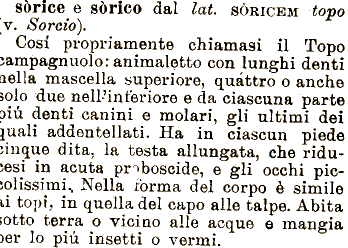 sòrice e sòrico dal lat. SÒRICEM topo
(v. Sorcio).
Cosí propriamente chiamasi il Topo
campagnuolo: animaletto con lunghi denti
nella mascella superiore, quáttro o anche
solo due nell'inferiore e da ciascuna parte
piú denti canini e molari, gli ultimi dei
quali addentellati. Ha in ciascun piede
cinque dita, la testa allungata, che ridu-
cesi in acuta proboscide, e gli occhi pic-
colissimi. Nella forma del corpo è simile
ai topi, in quella del capo alle talpe. Abita
sotto terra o vicino alle acque e mangia
per lo piú insetti o vermi.